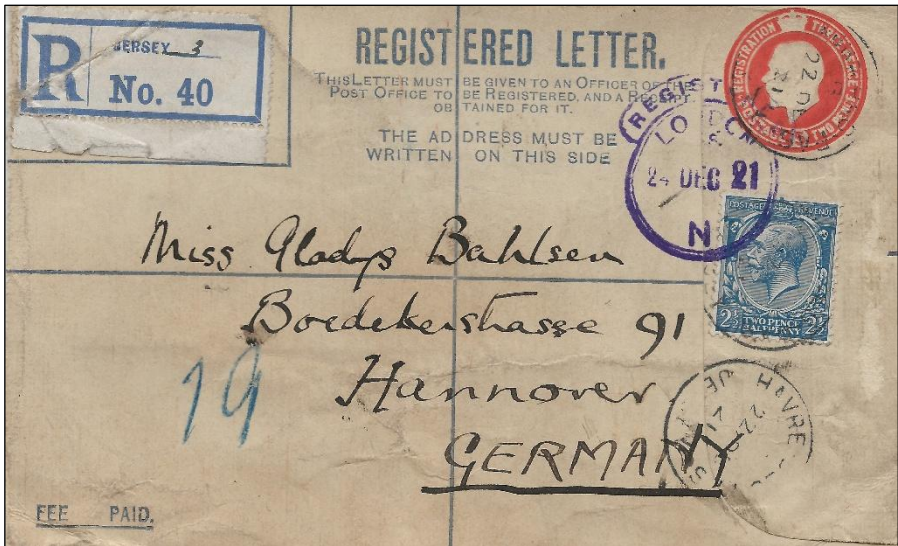 R
JERSEY 3
No. 40
REGISTERED LETTER.
THIS LETTER MUST BE GIVEN TO AN OFFICER OF THE
POST OFFICE TO BE REGISTERED, AND A RECEIPT
OBTAINED FOR IT.
THE ADDRESS MUST BE
WRITTEN ON THIS SIDE
REGISTRATION
POSTAGE
22 DE
21
REGIST
LONDON
24 DEC 21
N
POSTAGE REVENUE
2½ TWO PENCE 2½
HALFPENNY
Miss Gladys Bahlsen
Boedekerstrasse 91
Hannover
GERMANY
19
HAVRE
22 DE
21
JE
FEE PAID.